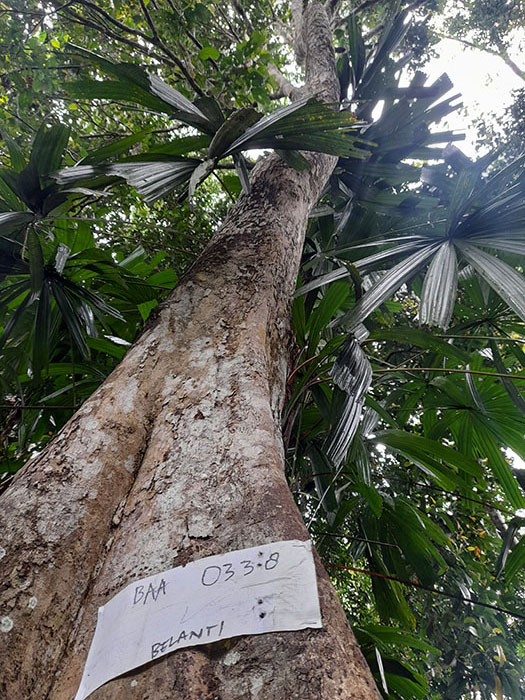 BAA 0338
BELANTI